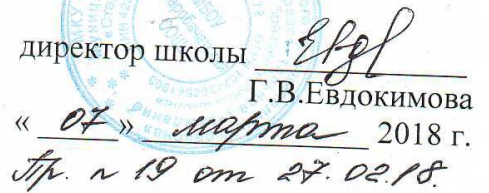 директор школы
Г.В.Евдокимова
« 07 » марта 2018 г.
Пр. № 19 от 27.02.18.